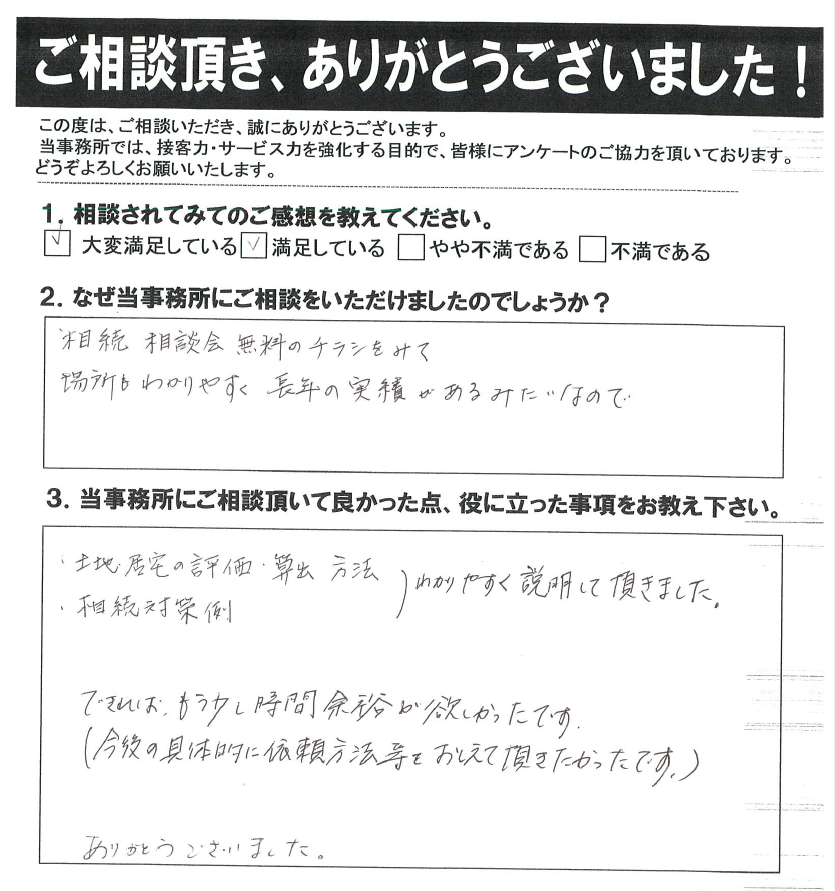 ご相談頂き、ありがとうございました！
この度は、ご相談いただき、誠にありがとうございます。
当事務所では、接客力・サービス力を強化する目的で、皆様にアンケートのご協力を頂いております。
どうぞよろしくお願いいたします。
1．相談されてみてのご感想を教えてください。
☑ 大変満足している ☑ 満足している □ やや不満である □ 不満である
2．なぜ当事務所にご相談をいただけましたのでしょうか？
相続 相談会 無料のチラシをみて
場所もわかりやすく 長年の実績があるみたいなので
3．当事務所にご相談頂いて良かった点、役に立った事項をお教え下さい。
・土地・居宅の評価・算出 方法
・相続対策例
）わかりやすく説明して頂きました。
できれば、もう少し時間余裕が欲しかったです。
(今後の具体的に依頼方法等をおしえて頂きたかったです。)
ありがとうございました。